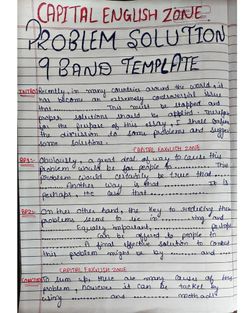 CAPITAL ENGLISH ZONE.
PROBLEM SOLUTION
9 BAND TEMPLATE
INTRO: Recently, in many countries around the world, it
has become an extremely controversial issue
that ........ This must be stopped and
proper solutions should be applied. Therefore
for the purpose of this essay, I shall confine
the discussion to some problems and suggest
some solutions.
CAPITAL ENGLISH ZONE
BP1:- Obviously, a great deal of way to cause this
problem would be for people to ...... This
problem would certainly be true that ....
.... Another way is that ........ It is
perhaps, the case that ..........
BP2:- On the other hand, the key to reducing these
problems seems to lie in ..... ring and
...... Equally important, ........ perhaps
...... can be offered to people in
...... A final effective solution to combat
this problem might be by ...... and ....
CAPITAL ENGLISH ZONE
To sum up, there are many causes of this
problem, however it can be tackled by
using ........ and ........ methods.